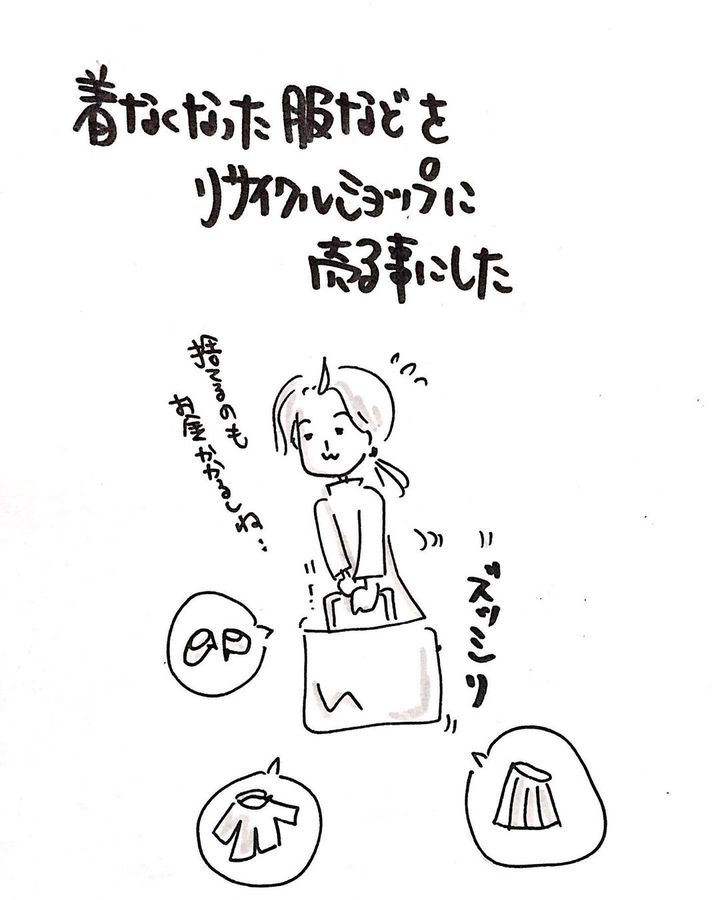 着なくなった服などを
リサイクルショップに
売る事にした
捨てるのも
お金かかるしね…
ズッシリ